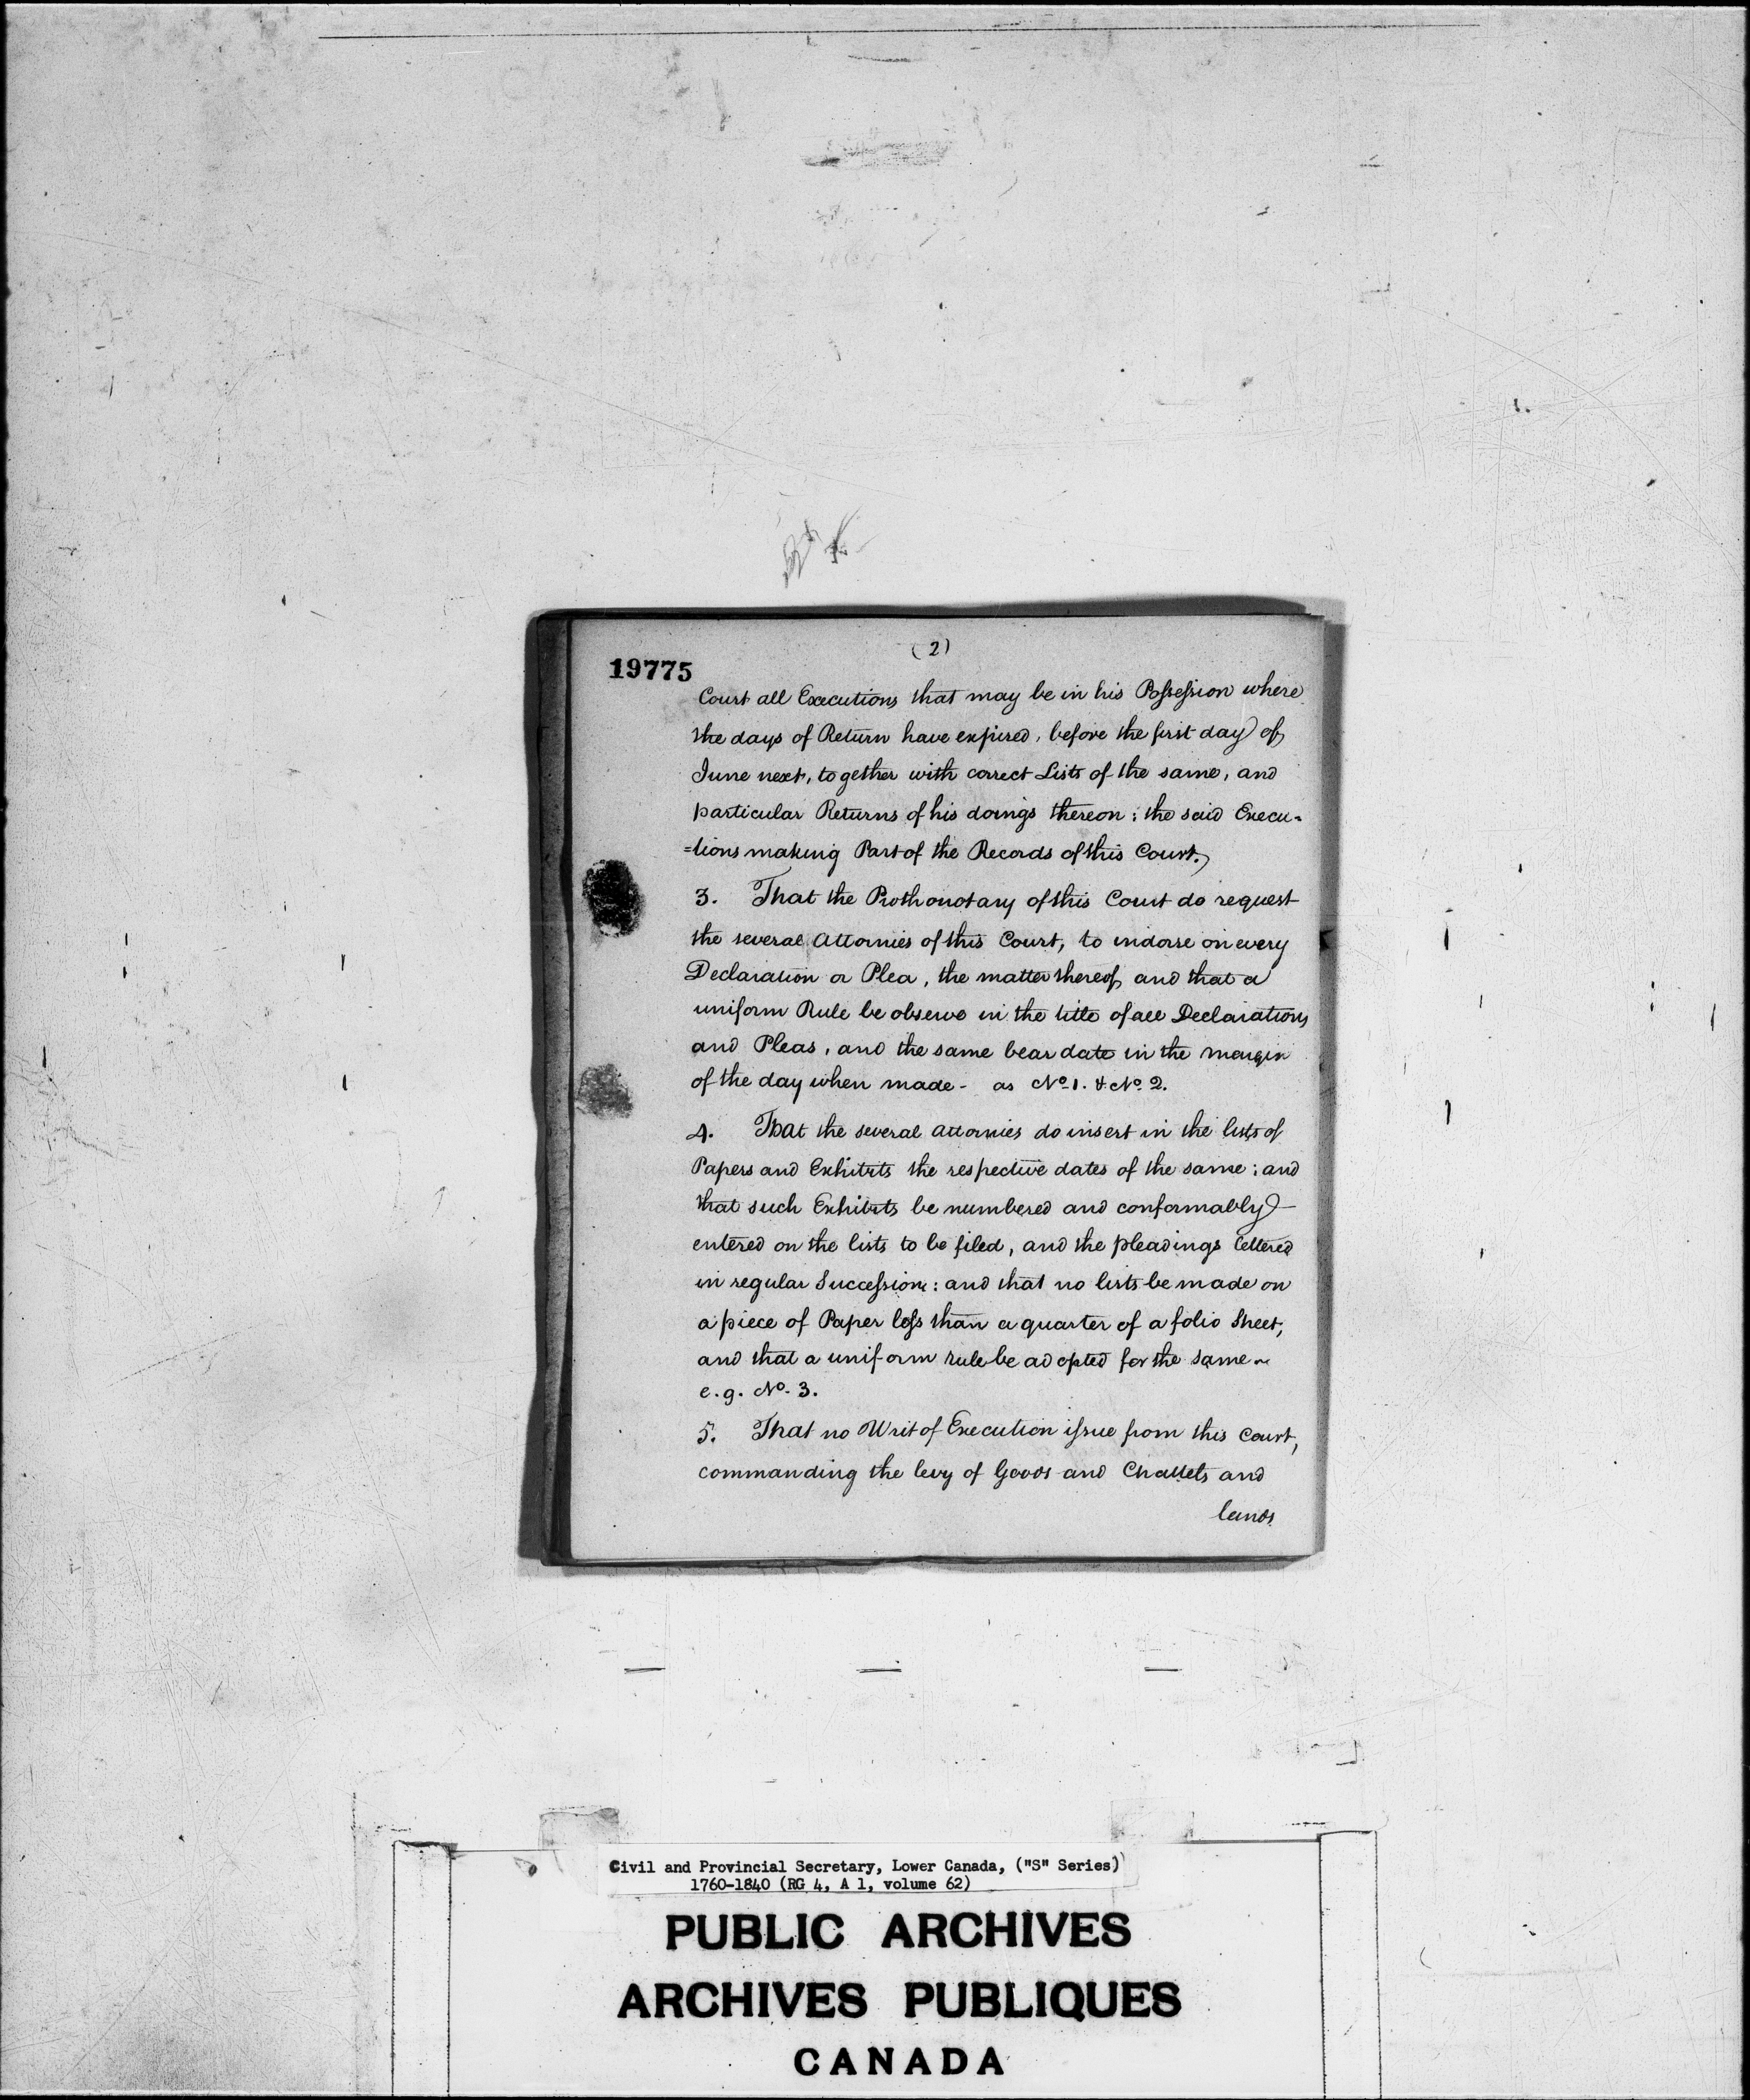 (2)
19775
Court all Executions that may be in his Possession where
the days of Return have expired, before the first day of
June next, together with correct Lists of the same, and
particular Returns of his doings thereon; the said Execu-
=tions making Part of the Records of this Court.
3. That the Prothonotary of this Court do request
the several Attornies of this Court, to indorse on every
Declaration or Plea, the matter thereof, and that a
uniform Rule be observe in the title of all Declarations
and Pleas, and the same bear date in the margin
of the day when made - as No. 1. & No. 2.
4. That the several attornies do insert in the lists of
Papers and Exhibits the respective dates of the same; and
that such Exhibits be numbered and conformably
entered on the lists to be filed, and the pleadings lettered
in regular Succession: and that no lists be made on
a piece of Paper less than a quarter of a folio Sheet,
and that a uniform rule be adopted for the same -
e.g. No. 3.
5. That no Writ of Execution issue from this Court,
commanding the levy of Goods and Chattels and
lands
Civil and Provincial Secretary, Lower Canada, ("S" Series)
1760-1840 (RG 4, A 1, volume 62)
PUBLIC ARCHIVES
ARCHIVES PUBLIQUES
CANADA